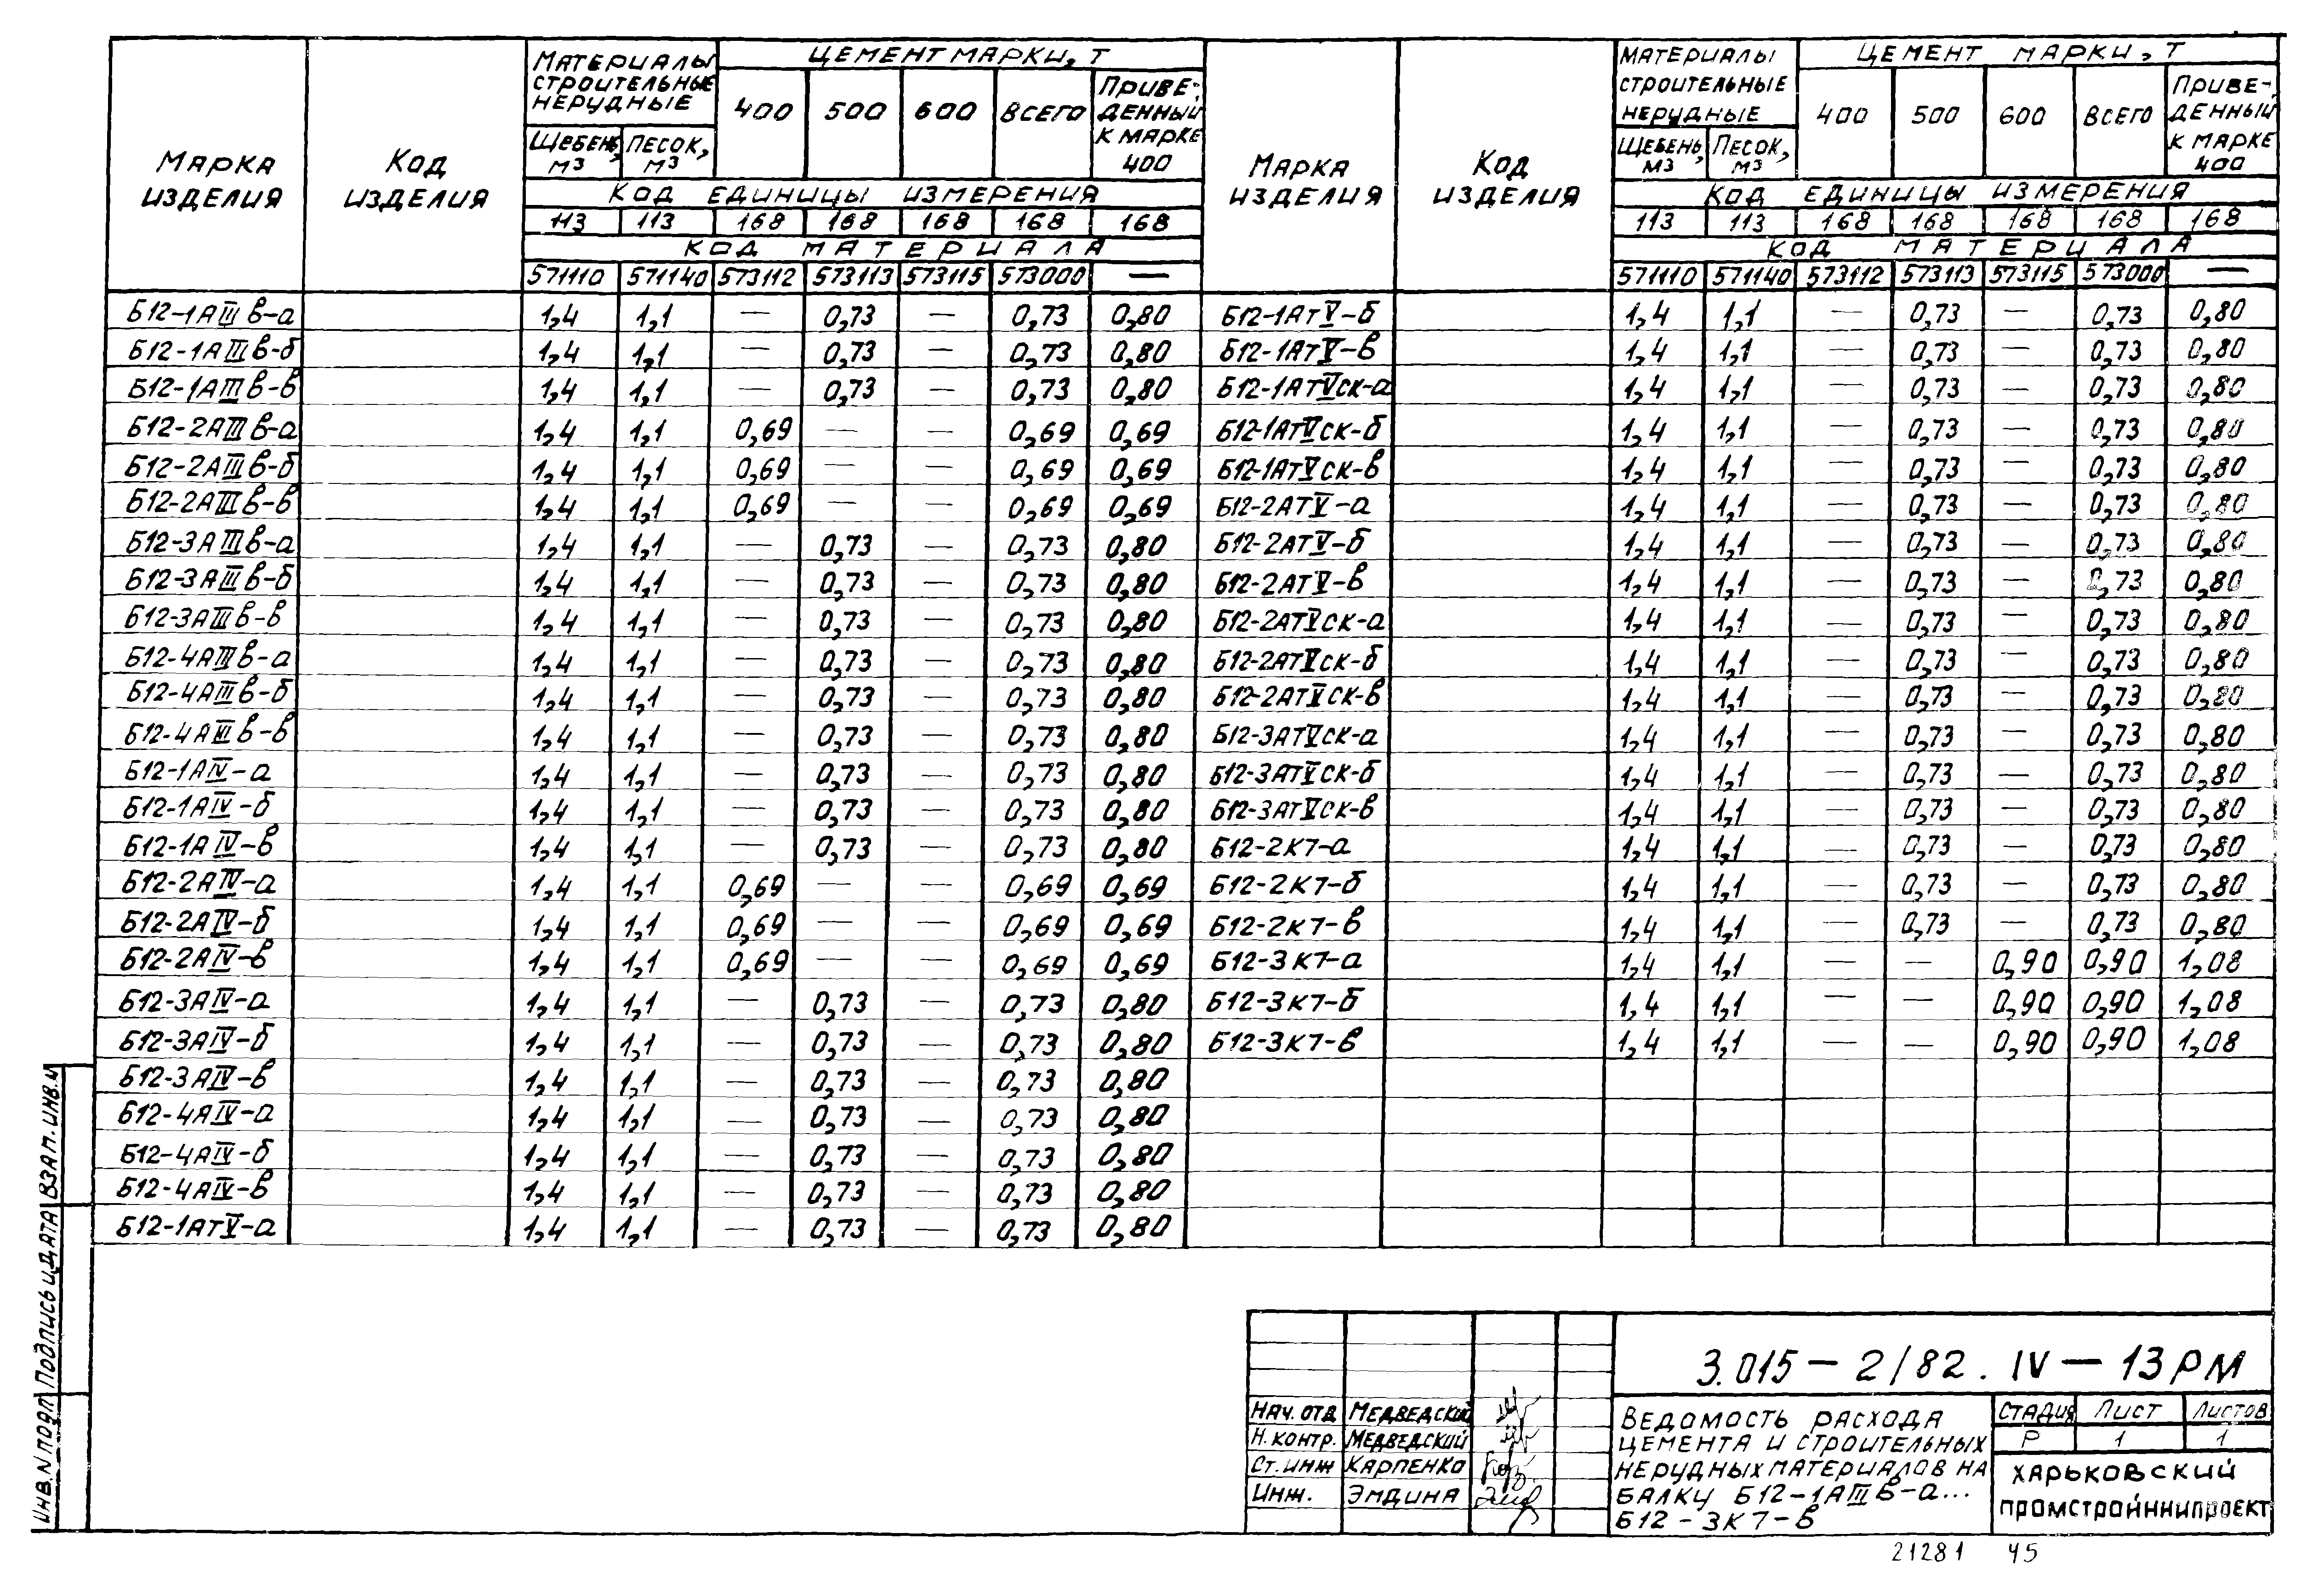 МАРКА ИЗДЕЛИЯ | КОД ИЗДЕЛИЯ | МАТЕРИАЛЫ СТРОИТЕЛЬНЫЕ НЕРУДНЫЕ | ЦЕМЕНТ МАРКИ, Т | МАРКА ИЗДЕЛИЯ | КОД ИЗДЕЛИЯ | МАТЕРИАЛЫ СТРОИТЕЛЬНЫЕ НЕРУДНЫЕ | ЦЕМЕНТ МАРКИ, Т
ЩЕБЕНЬ, М3 | ПЕСОК, М3 | 400 | 500 | 600 | ВСЕГО | ПРИВЕ-ДЕННЫЙ К МАРКЕ 400 | ЩЕБЕНЬ, М3 | ПЕСОК, М3 | 400 | 500 | 600 | ВСЕГО | ПРИВЕ-ДЕННЫЙ К МАРКЕ 400
КОД ЕДИНИЦЫ ИЗМЕРЕНИЯ | КОД ЕДИНИЦЫ ИЗМЕРЕНИЯ
113 | 113 | 168 | 168 | 168 | 168 | 168 | 113 | 113 | 168 | 168 | 168 | 168 | 168
КОД МАТЕРИАЛА | КОД МАТЕРИАЛА
571110 | 571140 | 573112 | 573113 | 573115 | 573000 | — | 571110 | 571140 | 573112 | 573113 | 573115 | 573000 | —
Б12-1АIIIв-а | 1,4 | 1,1 | — | 0,73 | — | 0,73 | 0,80 | Б12-1АтV-б | 1,4 | 1,1 | — | 0,73 | — | 0,73 | 0,80
Б12-1АIIIв-б | 1,4 | 1,1 | — | 0,73 | — | 0,73 | 0,80 | Б12-1АтV-в | 1,4 | 1,1 | — | 0,73 | — | 0,73 | 0,80
Б12-1АIIIв-в | 1,4 | 1,1 | — | 0,73 | — | 0,73 | 0,80 | Б12-1АтVск-а | 1,4 | 1,1 | — | 0,73 | — | 0,73 | 0,80
Б12-2АIIIв-а | 1,4 | 1,1 | 0,69 | — | — | 0,69 | 0,69 | Б12-1АтVск-б | 1,4 | 1,1 | — | 0,73 | — | 0,73 | 0,80
Б12-2АIIIв-б | 1,4 | 1,1 | 0,69 | — | — | 0,69 | 0,69 | Б12-1АтVск-в | 1,4 | 1,1 | — | 0,73 | — | 0,73 | 0,80
Б12-2АIIIв-в | 1,4 | 1,1 | 0,69 | — | — | 0,69 | 0,69 | Б12-2АтV-а | 1,4 | 1,1 | — | 0,73 | — | 0,73 | 0,80
Б12-3АIIIв-а | 1,4 | 1,1 | — | 0,73 | — | 0,73 | 0,80 | Б12-2АтV-б | 1,4 | 1,1 | — | 0,73 | — | 0,73 | 0,80
Б12-3АIIIв-б | 1,4 | 1,1 | — | 0,73 | — | 0,73 | 0,80 | Б12-2АтV-в | 1,4 | 1,1 | — | 0,73 | — | 0,73 | 0,80
Б12-3АIIIв-в | 1,4 | 1,1 | — | 0,73 | — | 0,73 | 0,80 | Б12-2АтVск-а | 1,4 | 1,1 | — | 0,73 | — | 0,73 | 0,80
Б12-4АIIIв-а | 1,4 | 1,1 | — | 0,73 | — | 0,73 | 0,80 | Б12-2АтVск-б | 1,4 | 1,1 | — | 0,73 | — | 0,73 | 0,80
Б12-4АIIIв-б | 1,4 | 1,1 | — | 0,73 | — | 0,73 | 0,80 | Б12-2АтVск-в | 1,4 | 1,1 | — | 0,73 | — | 0,73 | 0,80
Б12-4АIIIв-в | 1,4 | 1,1 | — | 0,73 | — | 0,73 | 0,80 | Б12-3АтVск-а | 1,4 | 1,1 | — | 0,73 | — | 0,73 | 0,80
Б12-1АIV-а | 1,4 | 1,1 | — | 0,73 | — | 0,73 | 0,80 | Б12-3АтVск-б | 1,4 | 1,1 | — | 0,73 | — | 0,73 | 0,80
Б12-1АIV-б | 1,4 | 1,1 | — | 0,73 | — | 0,73 | 0,80 | Б12-3АтVск-в | 1,4 | 1,1 | — | 0,73 | — | 0,73 | 0,80
Б12-1АIV-в | 1,4 | 1,1 | — | 0,73 | — | 0,73 | 0,80 | Б12-2К7-а | 1,4 | 1,1 | — | 0,73 | — | 0,73 | 0,80
Б12-2АIV-а | 1,4 | 1,1 | 0,69 | — | — | 0,69 | 0,69 | Б12-2К7-б | 1,4 | 1,1 | — | 0,73 | — | 0,73 | 0,80
Б12-2АIV-б | 1,4 | 1,1 | 0,69 | — | — | 0,69 | 0,69 | Б12-2К7-в | 1,4 | 1,1 | — | 0,73 | — | 0,73 | 0,80
Б12-2АIV-в | 1,4 | 1,1 | 0,69 | — | — | 0,69 | 0,69 | Б12-3К7-а | 1,4 | 1,1 | — | — | 0,90 | 0,90 | 1,08
Б12-3АIV-а | 1,4 | 1,1 | — | 0,73 | — | 0,73 | 0,80 | Б12-3К7-б | 1,4 | 1,1 | — | — | 0,90 | 0,90 | 1,08
Б12-3АIV-б | 1,4 | 1,1 | — | 0,73 | — | 0,73 | 0,80 | Б12-3К7-в | 1,4 | 1,1 | — | — | 0,90 | 0,90 | 1,08
Б12-3АIV-в | 1,4 | 1,1 | — | 0,73 | — | 0,73 | 0,80
Б12-4АIV-а | 1,4 | 1,1 | — | 0,73 | — | 0,73 | 0,80
Б12-4АIV-б | 1,4 | 1,1 | — | 0,73 | — | 0,73 | 0,80
Б12-4АIV-в | 1,4 | 1,1 | — | 0,73 | — | 0,73 | 0,80
Б12-1АтV-а | 1,4 | 1,1 | — | 0,73 | — | 0,73 | 0,80
ИНВ.N ПОДЛ | ПОДПИСЬ И ДАТА | ВЗАМ. ИНВ.N
3.015-2/82.IV-13РМ
НАЧ.ОТД | МЕДВЕДСКИЙ
Н.КОНТР. | МЕДВЕДСКИЙ
СТ.ИНЖ | КАРПЕНКО
ИНЖ. | ЭМДИНА
ВЕДОМОСТЬ РАСХОДА
ЦЕМЕНТА И СТРОИТЕЛЬНЫХ
НЕРУДНЫХ МАТЕРИАЛОВ НА
БАЛКУ Б12-1АIIIв-а...
Б12-3К7-в
СТАДИЯ | ЛИСТ | ЛИСТОВ
Р | 1 | 1
ХАРЬКОВСКИЙ
ПРОМСТРОЙНИИПРОЕКТ
21281 45